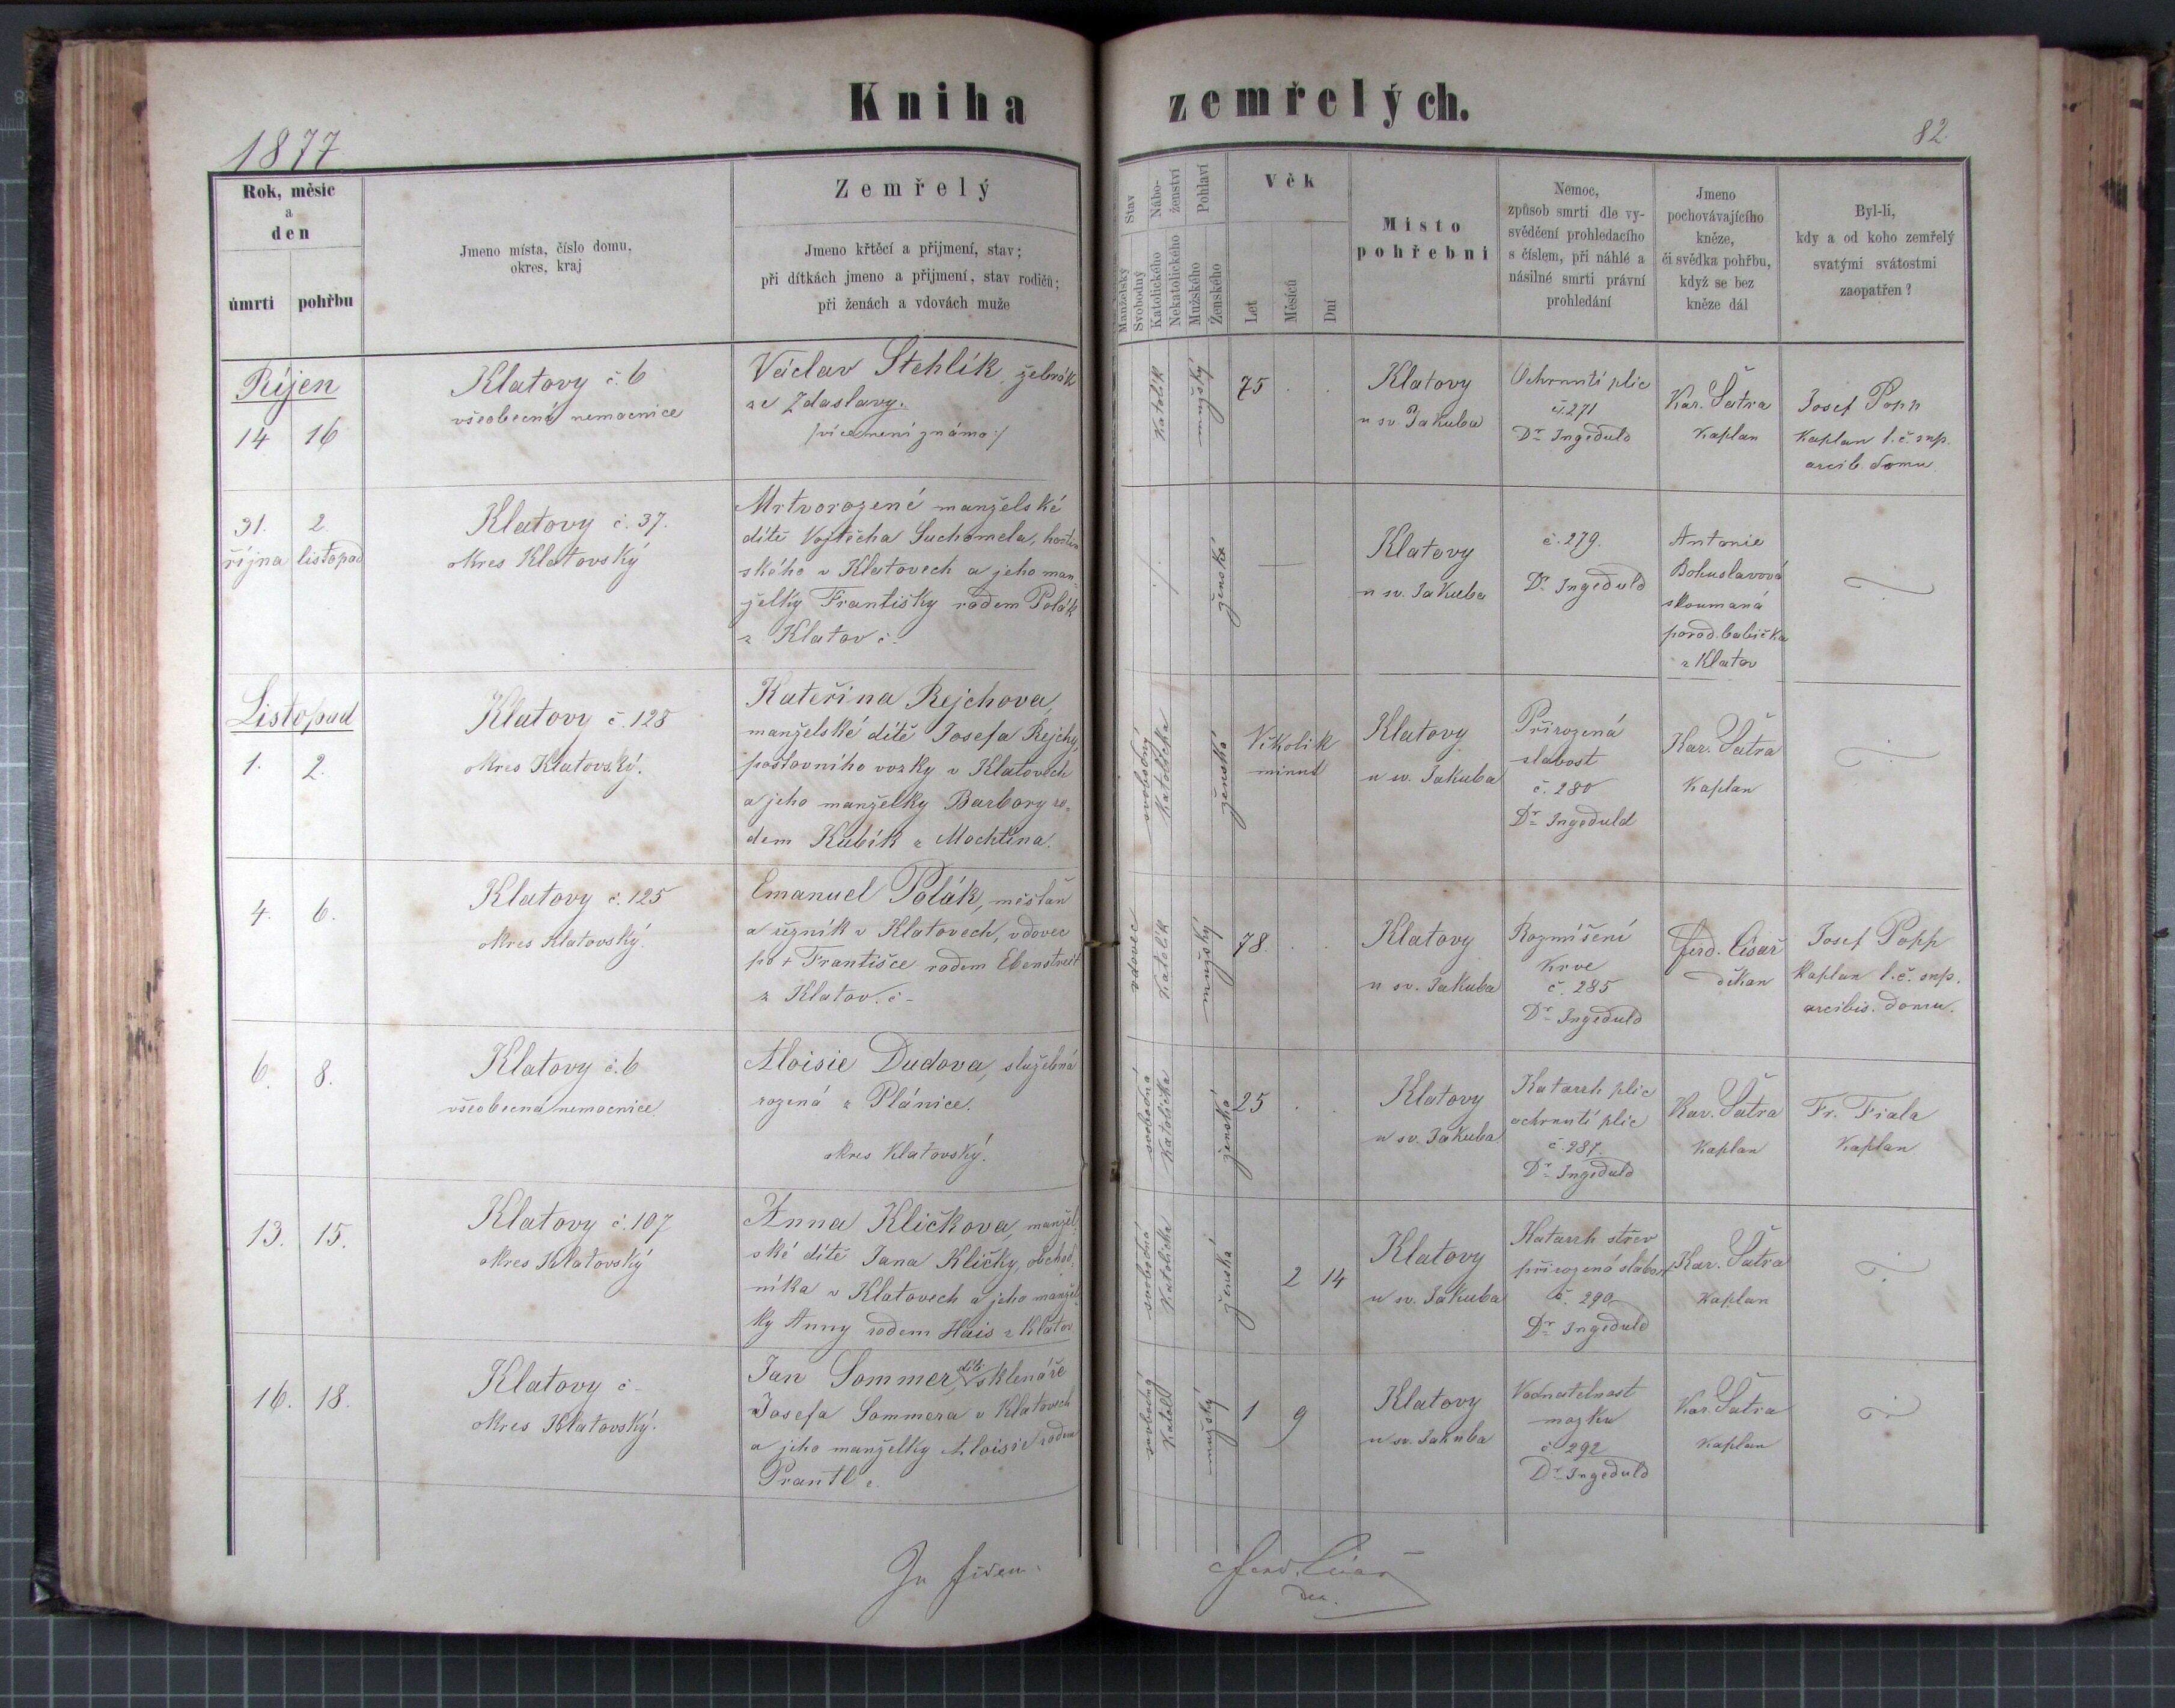 Kniha zemřelých.
1877
82
Rok, měsíc
a
den
úmrtí
pohřbu
Jmeno místa, číslo domu,
okres, kraj
Zemřelý
Jmeno křtěcí a přijmení, stav;
při dítkách jmeno a přijmení, stav rodičů;
při ženách a vdovách muže
Stav
Manželský
Svobodný
Nábo-
ženství
Katolického
Nekatolického
Pohlaví
Mužského
Ženského
Věk
Let
Měsíců
Dní
Místo
pohřební
Nemoc,
způsob smrti dle vy-
svědčení prohledacího
s číslem, při náhlé a
násilné smrti právní
prohledání
Jmeno
pochovávajícího
kněze,
či svědka pohřbu,
když se bez
kněze dál
Byl-li,
kdy a od koho zemřelý
svatými svátostmi
zaopatřen?
Říjen
14 16
Klatovy č. 6
všeobecná nemocnice
Václav Stehlík, žebrák
ze Zdaslavy.
/více není známo:/
Katolík
mužský
75 . .
Klatovy
u sv. Jakuba
Ochrnutí plic
č. 271
Dr. Ingeduld
Kar. Šatra
Kaplan
Josef Popp
Kaplan l. č. sup.
arcib. domu.
31. 2.
října listopad
Klatovy č. 37.
okres Klatovský
Mrtvorozené manželské
dítě Vojtěcha Suchomela, hostin
ského v Klatovech a jeho man-
želky Františky rodem Polák
z Klatov č.
ženské
—
Klatovy
u sv. Jakuba
č. 279.
Dr. Ingeduld
Antonie
Bohuslavová
skoumaná
porod. babička
z Klatov
Listopad
1. 2.
Klatovy č. 128
okres Klatovský.
Kateřina Rejchova,
manželské dítě Josefa Rejchy,
poštovního vozky v Klatovech
a jeho manželky Barbory ro-
dem Kubík z Mochtína.
svobodný
Katolička
ženská
Několik
minut
Klatovy
u sv. Jakuba
Přirozená
slabost
č. 280
Dr. Ingeduld
Kar. Šatra
Kaplan
4. 6.
Klatovy č. 125
okres Klatovský.
Emanuel Polák, měšťan
a řezník v Klatovech, vdovec
po + Františce rodem Ebenstreit
z Klatov. č -
vdovec
Katolík
mužský
78. . .
Klatovy
u sv. Jakuba
Rozmíšení
krve
č. 285
Dr. Ingeduld
Ferd. Císař
děkan
Josef Popp
Kaplan l. č. sup.
arcibis. domu.
6. 8.
Klatovy č. 6
všeobecná nemocnice
Aloisie Dudova, služebná
rozená z Plánice.
okres Klatovský.
svobodná
Katolička
ženská
25 . .
Klatovy
u sv. Jakuba
Katarrh plic
ochrnutí plic
č. 287.
Dr. Ingeduld
Kar. Šatra
Kaplan
Fr. Fiala
Kaplan
13. 15.
Klatovy č. 107
okres Klatovský
Anna Kličkova, manžel-
ské dítě Jana Kličky, obchod-
níka v Klatovech a jeho manžel-
ky Anny rodem Hais z Klatov
svobodná
Katolička
ženská
2 14
Klatovy
u sv. Jakuba
Katarrh střev
přirozená slabost
č. 290
Dr. Ingeduld
Kar. Šatra
Kaplan
16. 18.
Klatovy č -
okres Klatovský.
Jan Sommer, dítě sklenáře
Josefa Sommera v Klatovech
a jeho manželky Aloisie rodem
Prantl
svobodný
Katol
mužský
1 9
Klatovy
u sv. Jakuba
Vodnatelnost
mozku
č. 292
Dr. Ingeduld
Kar. Šatra
Kaplan
In fidem
Ferd. Císař
dec.